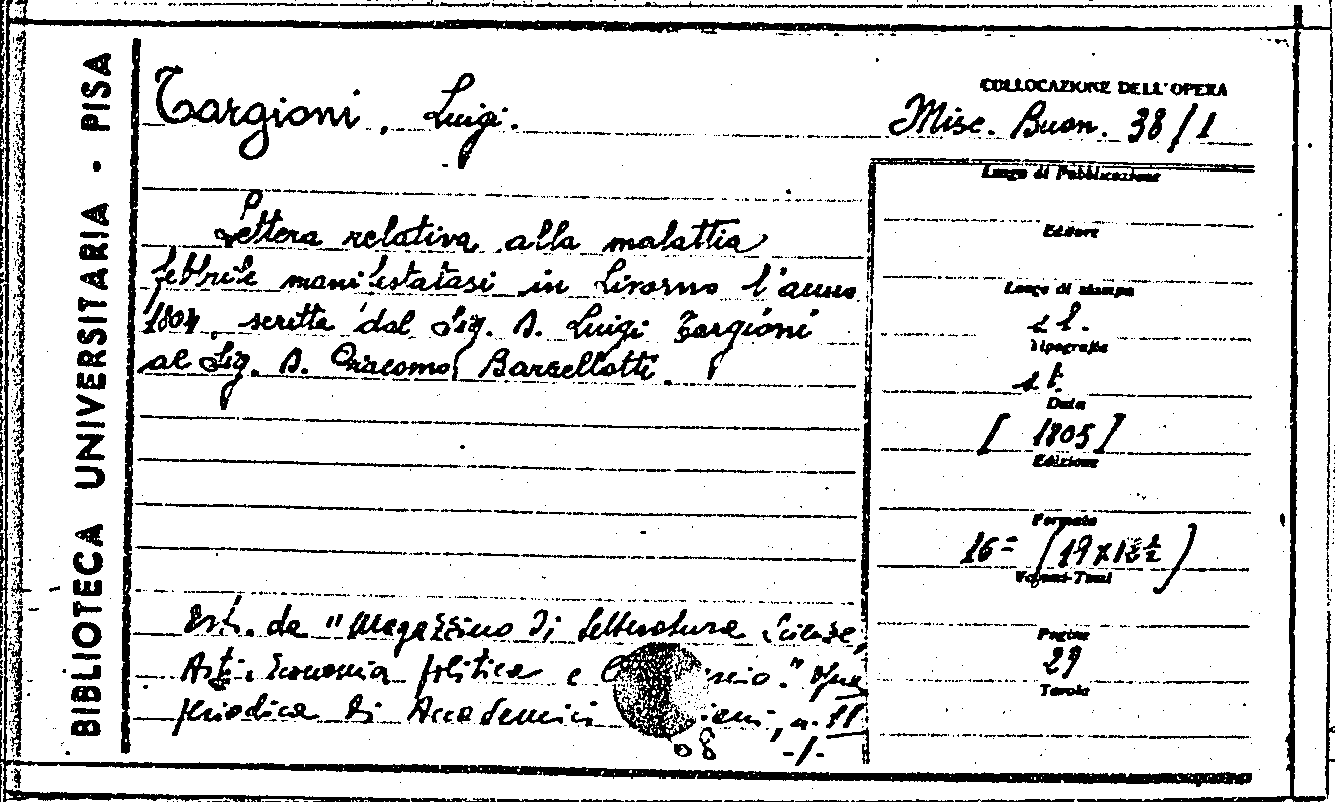 BIBLIOTECA UNIVERSITARIA - PISA
Targioni, Luigi.
COLLOCAZIONE DELL'OPERA
Misc. Buon. 38/1
Lettera relativa alla malattia
febbrile manifestatasi in Livorno l'anno
1804, scritta dal Sig. D. Luigi Targioni
al Sig. D. Giacomo Barzellotti.
Estr. da "Magazzino di letteratura Scienze,
Arti, Economia politica e
periodica di Accademici n. 11
-/-
08
Luogo di Pubblicazione
Editore
Luogo di stampa
s l.
Tipografia
s t.
Data
[1805]
Edizione
Formato
16= (19x12½)
Volumi-Tomi
Pagine
29
Tavole